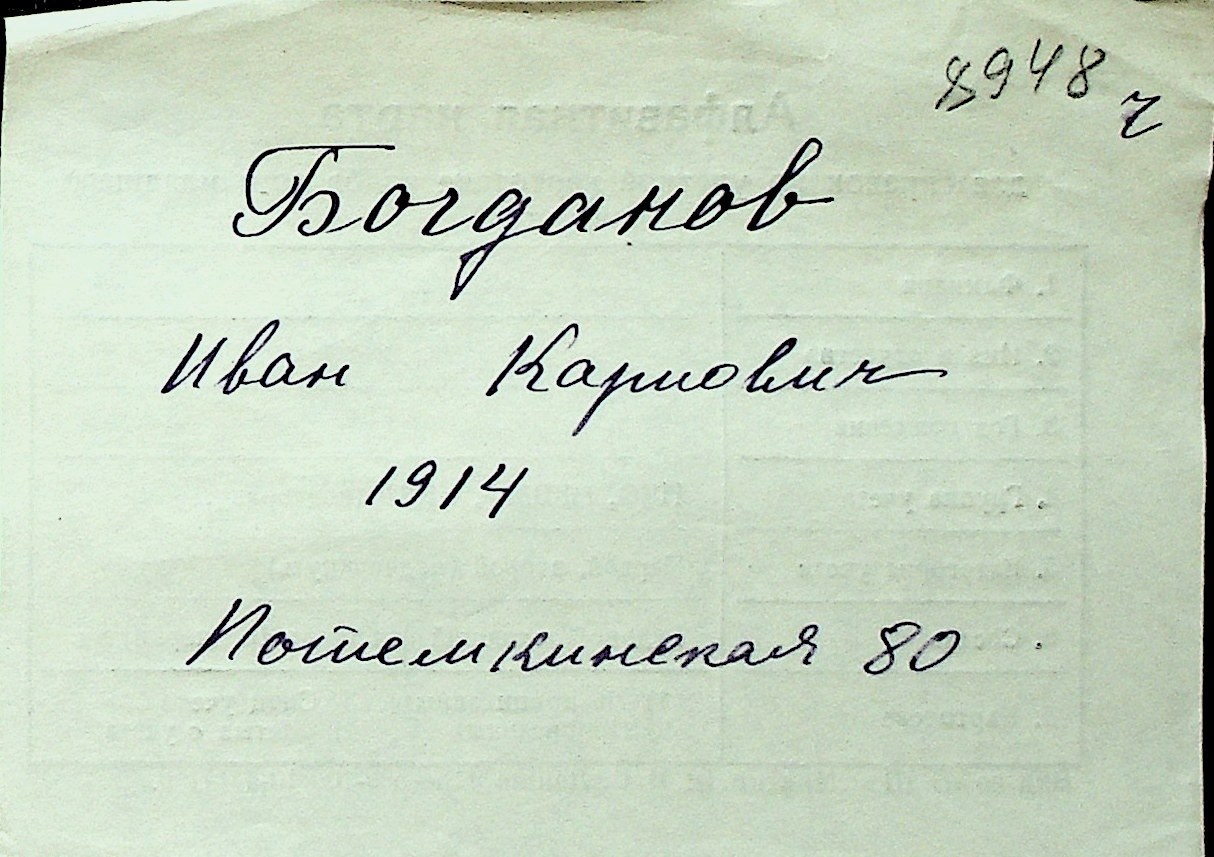 8948 ч
Богданов
Иван Карпович
1914
Потемкинская 80